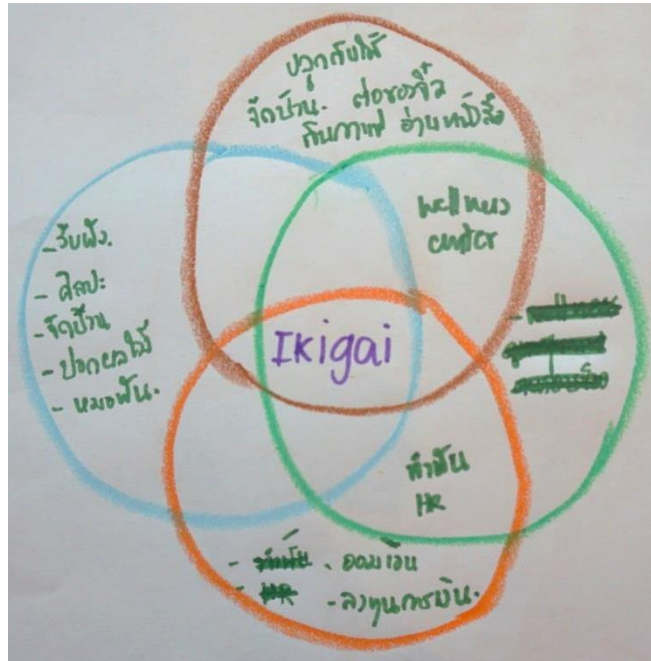 ปลูกต้นไม้
จัดบ้าน. ต่อของจิ๋ว
กินกาแฟ อ่านหนังสือ
wellness
center
- รับฟัง.
- ศิลปะ
- จัดบ้าน
- ปอกผลไม้
- หมอฟัน.
Ikigai
ทำฟัน
HR
- ทำฟัน - ออมเงิน
- HR - ลงทุนการเงิน.